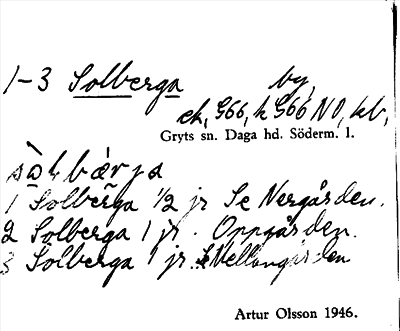 1-3 Solberga by,
ek, G66, k G66 NO, kb,
Gryts sn. Daga hd. Söderm. l.
sòlbærja
1 Solberga 1/2 jr Se Nergården.
2 Solberga 1 jr. Oppgården.
3 Solberga 1 jr. Se Mellangården
Artur Olsson 1946.